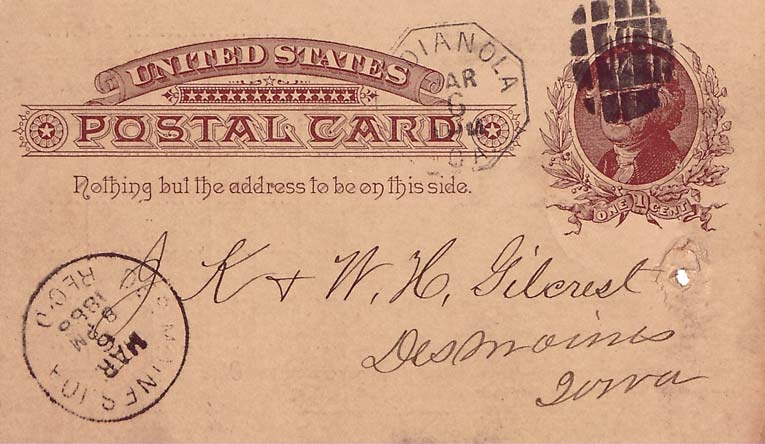 UNITED STATES
POSTAL CARD
Nothing but the address to be on this side.
DIANOLA
AR
ONE 1 CENT
J K & W. H. Gilcrest
Des Moines
Iowa
MAINES, IOA
MAR
8
PM
REC'D